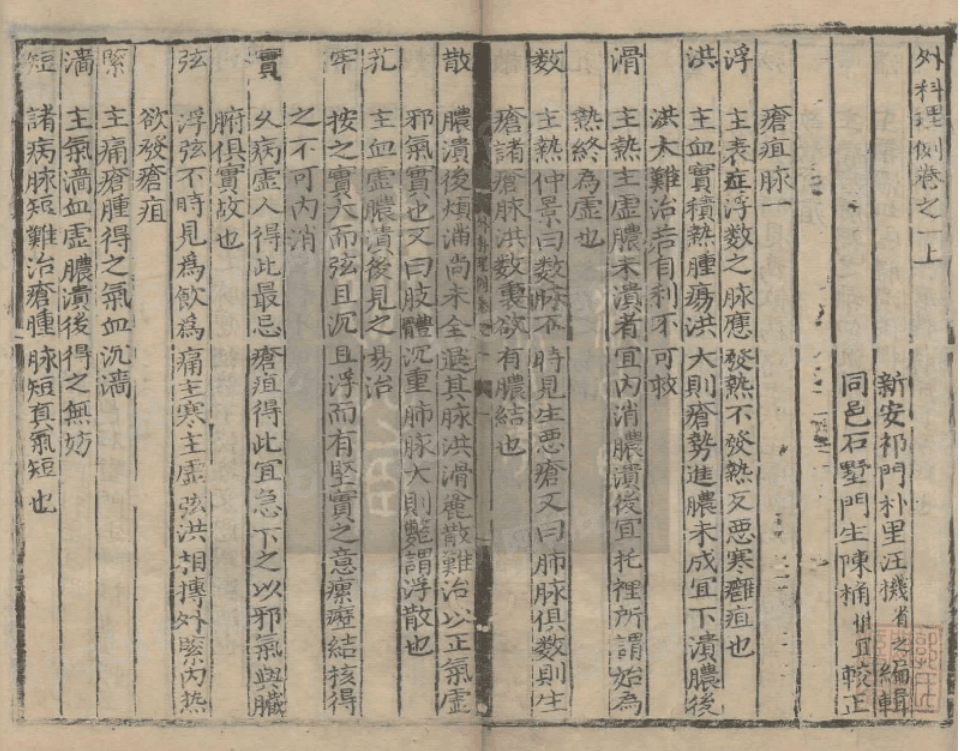 外科理例卷之一上
新安祁門朴里汪機省之編輯
同邑石墅門生陳桷惟宜較正
瘡疽脉一
浮 主表症浮数之脉應發熱不發熱反惡寒癰疽也
洪 主血實積熱腫瘍洪大則瘡勢進膿未成宜下潰膿後
洪大難治若自利不可救
滑 主熱主虚膿未潰者宜内消膿潰後宜托裡所謂始為
熱終為虚也
数 主熱仲景曰数脉不時見生惡瘡又曰肺脉俱数則生
瘡諸瘡脉洪数裏欲有膿結也
散 膿潰後煩滿尚未全退其脉洪滑麁散難治以正氣虚
邪氣實也又曰肢體沉重肺脉大則斃謂浮散也
芤 主血虚膿潰後見之易治
牢 按之實大而弦且沉且浮而有堅實之意瘰癧結核得
之不可内消
實 久病虚人得此最忌瘡疽得此宜急下之以邪氣與臓
腑俱實故也
弦 浮弦不時見爲飲爲痛主寒主虚弦洪相摶外緊内热
欲發瘡疽
緊 主痛瘡腫得之氣血沉濇
濇 主氣濇血虚膿潰後得之無妨
短 諸病脉短難治瘡腫脉短真氣短也